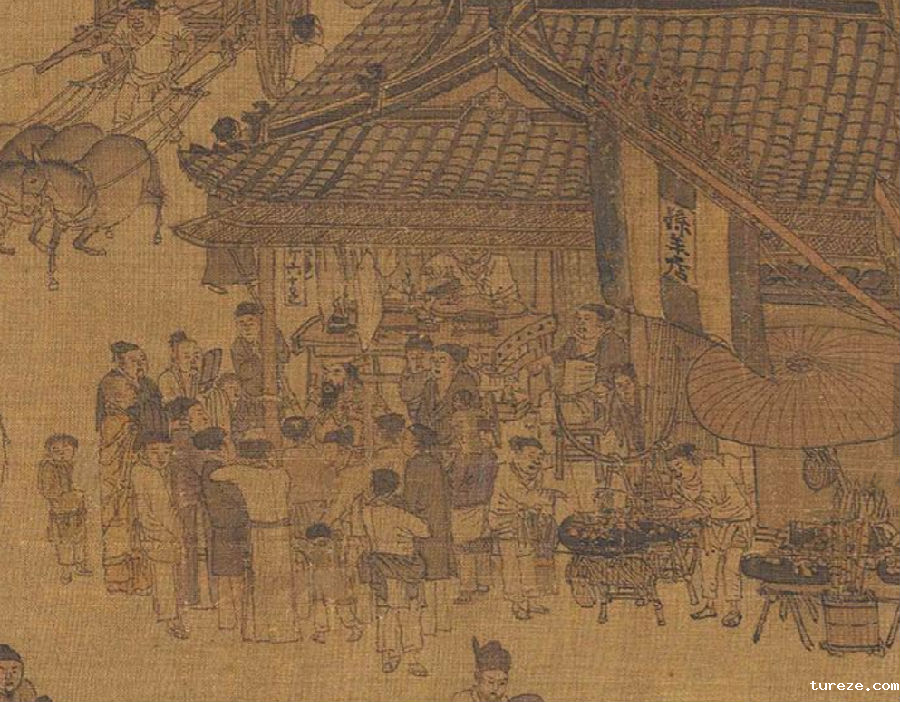 孫羊店
tureze.com